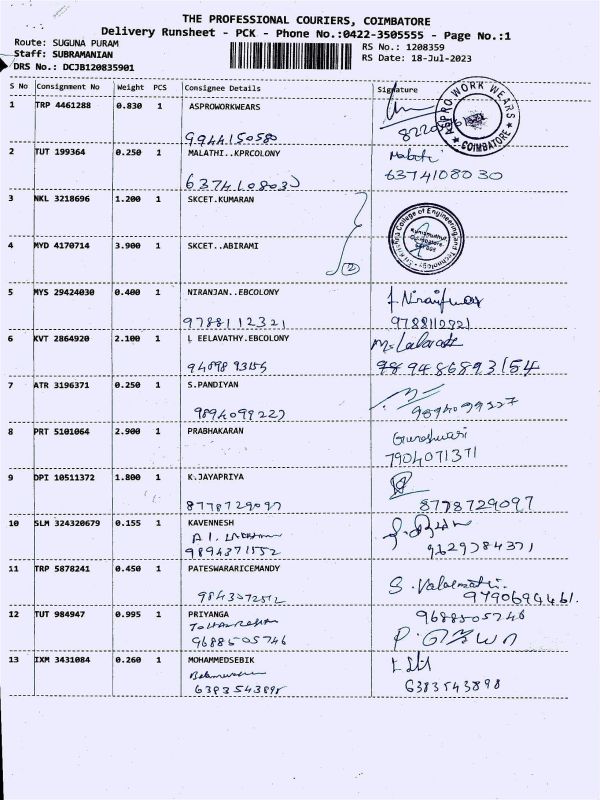 THE PROFESSIONAL COURIERS, COIMBATORE
Delivery Runsheet - PCK - Phone No.:0422-3505555 - Page No.:1
Route: SUGUNA PURAM
Staff: SUBRAMANIAN
DRS No.: DCJB120835901
RS No.: 1208359
RS Date: 18-Jul-2023
S No Consignment No Weight PCS Consignee Details Signature
1 TRP 4461288 0.830 1 ASPROWORKWEARS
9944150580
ASPRO WORK WEARS
COIMBATORE
2 TUT 199364 0.250 1 MALATHI..KPRCOLONY Malathi
6374108030 6374108030
3 NKL 3218696 1.200 1 SKCET.KUMARAN
College of Engineering and Technology
4 MYD 4170714 3.900 1 SKCET..ABIRAMI
2
5 MYS 29424030 0.400 1 NIRANJAN..EBCOLONY
9788112321 9788112321
6 KVT 2864920 2.100 1 L EELAVATHY.EBCOLONY
7 ATR 3196371 0.250 1 S.PANDIYAN
9894099227 9894099227
8 PRT 5101064 2.900 1 PRABHAKARAN
7904071371
9 DPI 10511372 1.800 1 K.JAYAPRIYA
8778729097 8778729097
10 SLM 324320679 0.155 1 KAVENNESH
9894371552 9629784371
11 TRP 5878241 0.450 1 PATESWARARICEMANDY
9790694461.
12 TUT 984947 0.995 1 PRIYANGA 9688505746
9688505746
13 IXM 3431084 0.260 1 MOHAMMEDSEBIK
6383543898 6383543898